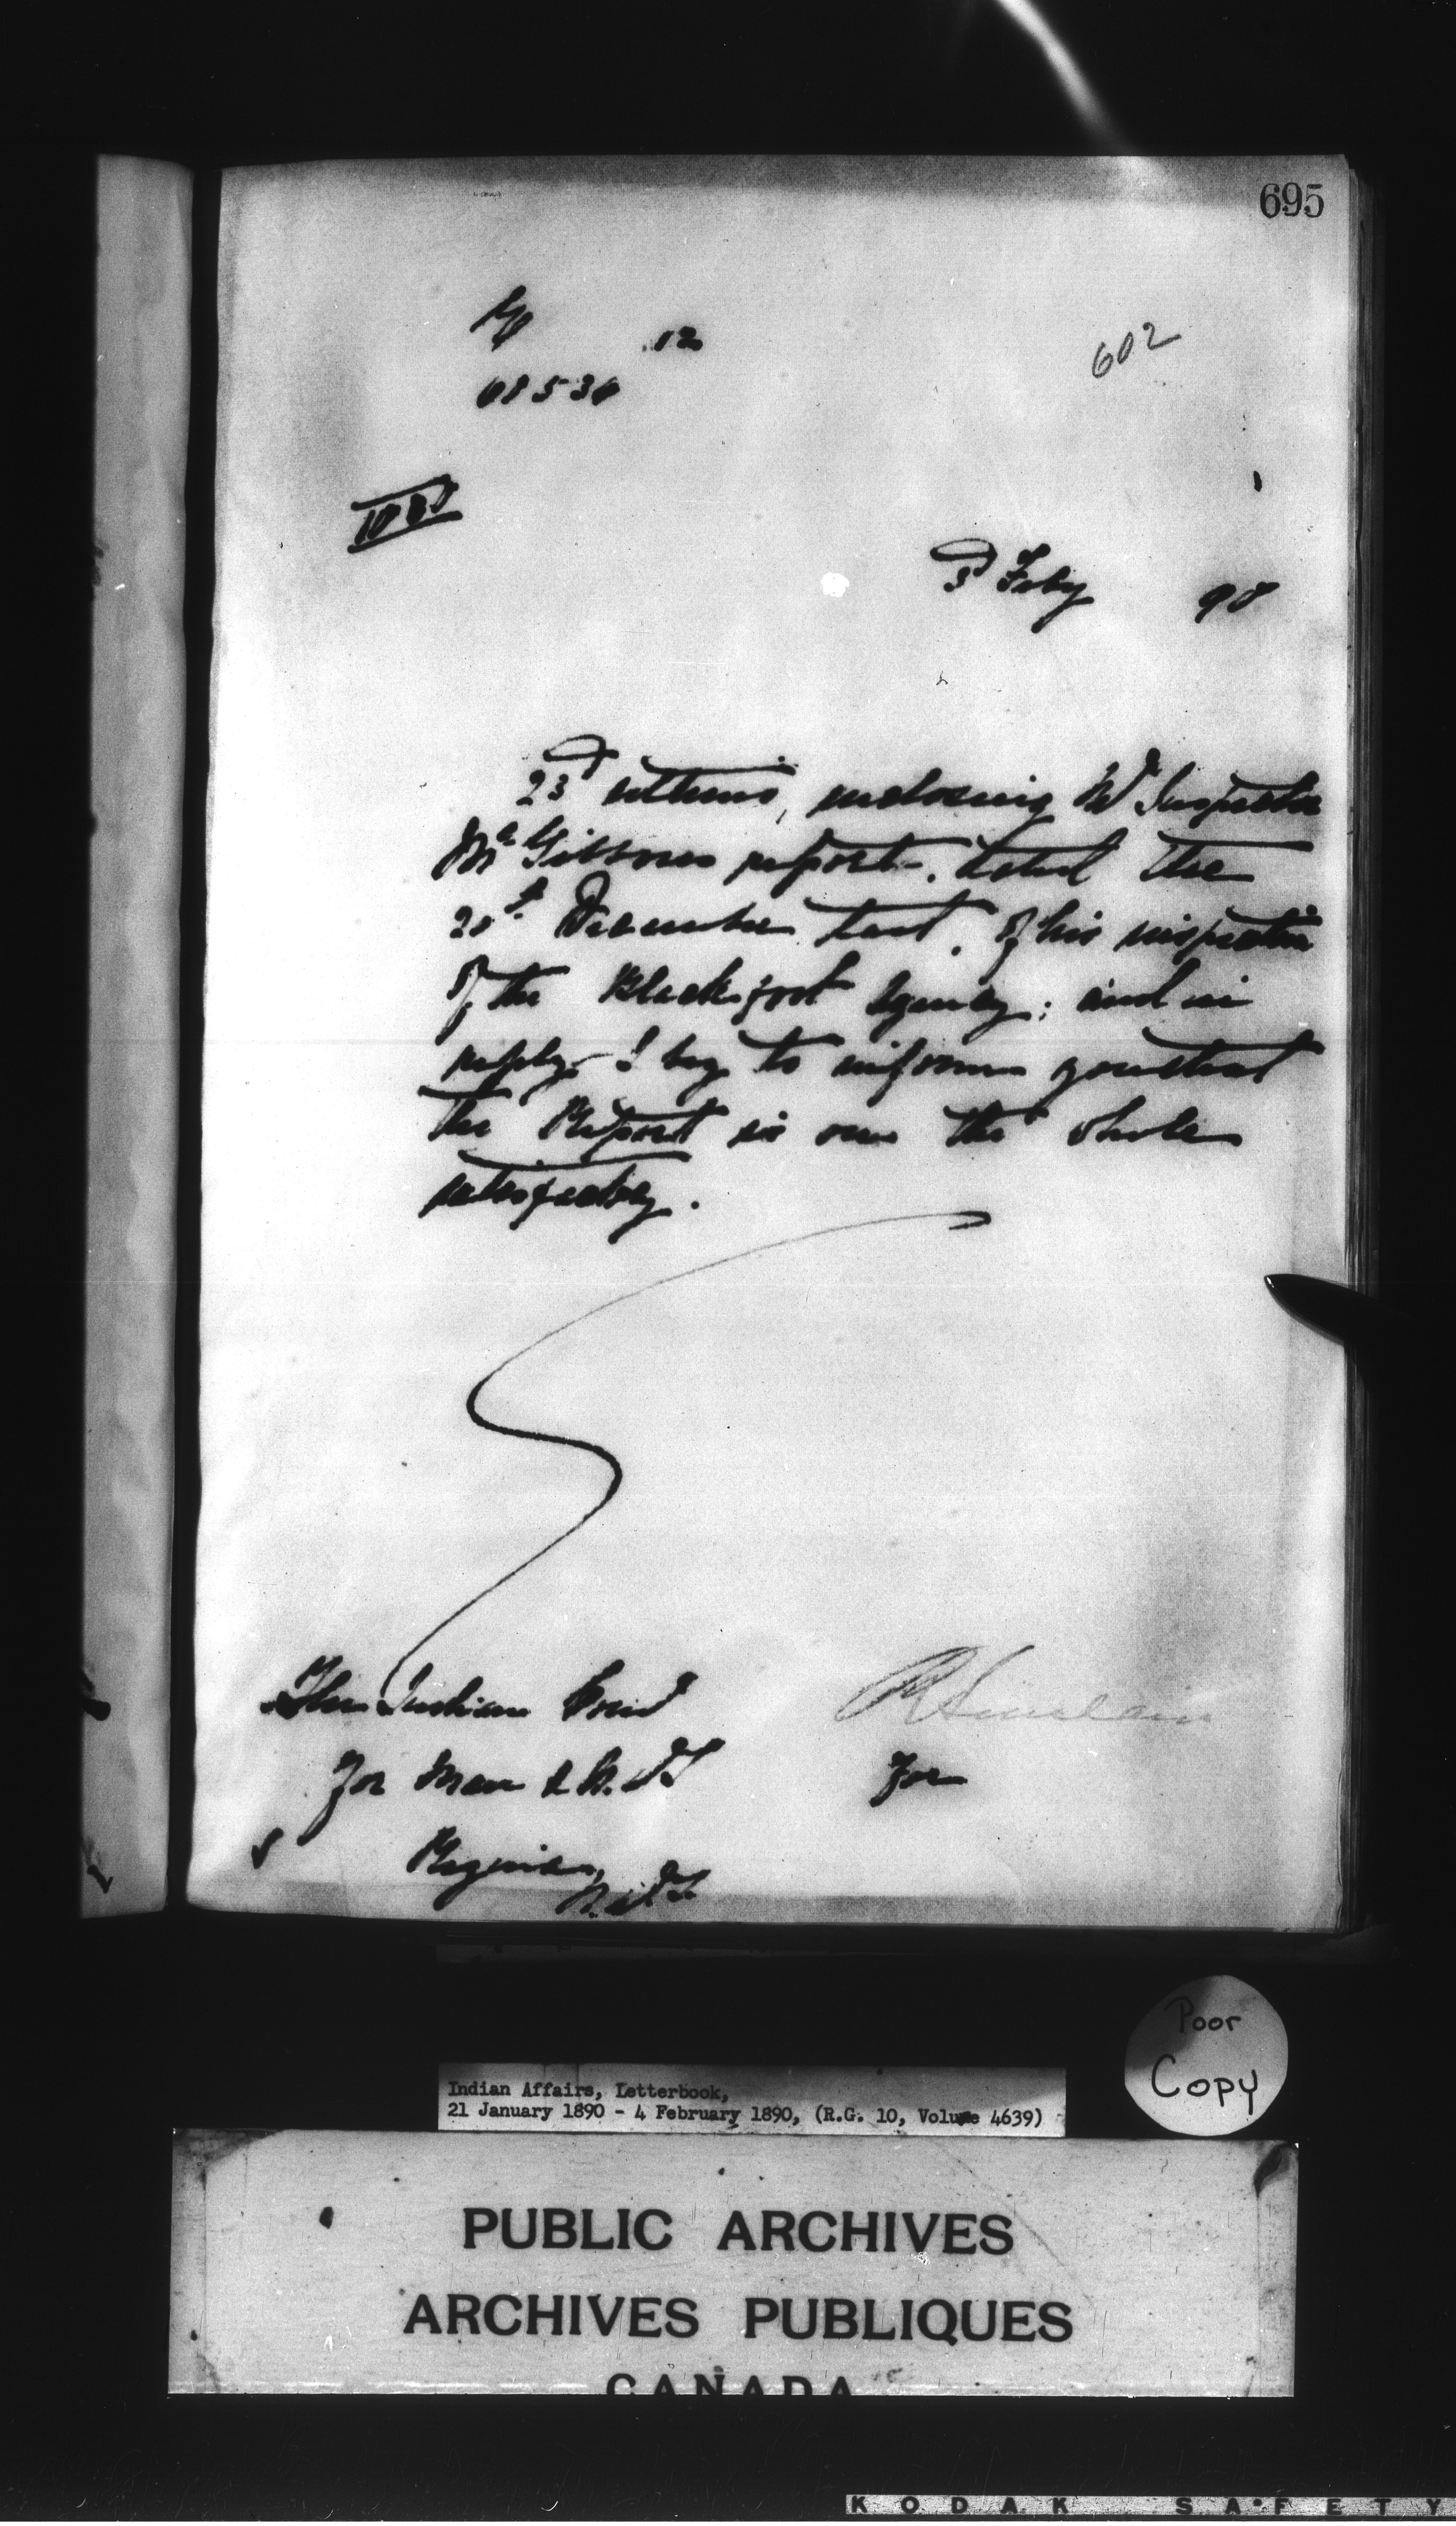 695
12
602
3d Feby 90
23d ultimo, enclosing Mr Inspector
McGibbon's report, dated the
December last, of his inspection
of the Blackfoot Agency; and in
reply I beg to inform you that
the Report is on the whole
satisfactory.
The Indian Comr
R Sinclair
for Man & N.W.T
For
Regina,
N.W.T
Poor
Copy
Indian Affairs, Letterbook,
21 January 1890 - 4 February 1890, (R.G. 10, Volume 4639)
PUBLIC ARCHIVES
ARCHIVES PUBLIQUES
CANADA
KODAK SAFETY